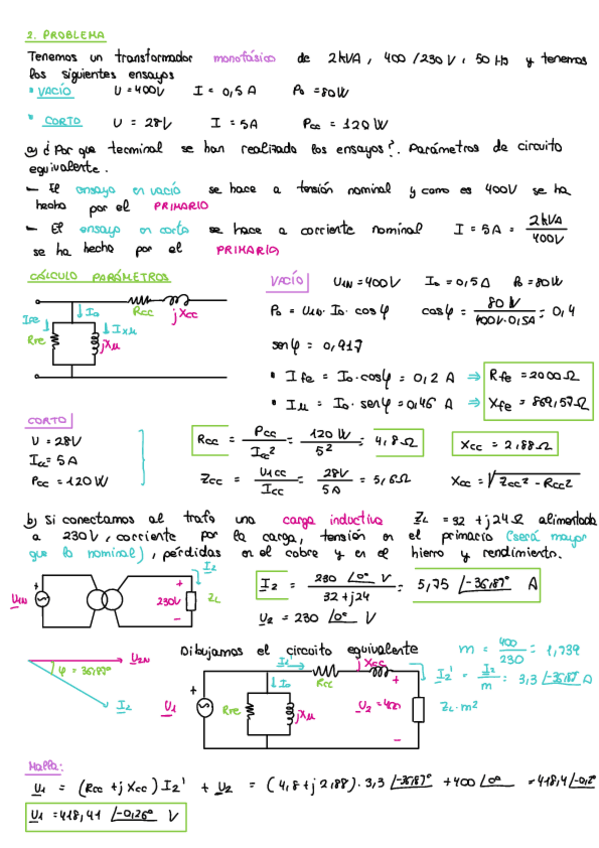 2. PROBLEMA
Tenemos un transformador monofásico de 2 kVA, 400/230 V, 50 Hz y tenemos
los siguientes ensayos
• VACÍO U = 400V I = 0,5 A P₀ = 80W
• CORTO U = 28V I = 5A Pcc = 120 W
a) ¿Por que terminal se han realizado los ensayos?. Parámetros de circuito
equivalente.
– El ensayo en vacío se hace a tensión nominal y como es 400V se ha
hecho por el PRIMARIO
– El ensayo en corto se hace a corriente nominal I = 5A = 2kVA / 400V
se ha hecho por el PRIMARIO
CÁLCULO PARÁMETROS
VACÍO U₁N = 400V I₀ = 0,5 A P₀ = 80W
IFe I₀ Rcc jXcc
RFe IXμ jXμ
P₀ = U₁₀ · I₀ · cosφ cosφ = 80 W / 400V·0,5A = 0,4
senφ = 0,917
• Ife = I₀·cosφ = 0,2 A ⇒ Rfe = 2000 Ω
• Iμ = I₀·senφ = 0,46 A ⇒ Xfe = 869,57 Ω
CORTO
U = 28V
Icc = 5A
Pcc = 120 W
Rcc = Pcc / Icc² = 120 W / 5² = 4,8 Ω
Xcc = 2,88 Ω
Zcc = U1cc / Icc = 28V / 5A = 5,6 Ω
Xcc = √Zcc² - Rcc²
b) Si conectamos al trafo una carga inductiva ZL = 32 + j24 Ω alimentada
a 230V, corriente por la carga, tensión en el primario (será mayor
que la nominal), pérdidas en el cobre y en el hierro y rendimiento.
U₁N 230V I₂ ZL
I₂ = 230 ∠0° V / 32 + j24 = 5,75 ∠-36,87° A
U₂ = 230 ∠0° V
U₂N
φ = 36,87°
I₂
Dibujamos el circuito equivalente
m = 400 / 230 = 1,739
I₂' = I₂ / m = 3,3 ∠-36,87 A
ZL·m²
I₂' I₀ Rcc jXcc
U₁ RFe jXμ
Malla:
U₁ = (Rcc + j Xcc) I₂' + U₂ = (4,8 + j 2,88) · 3,3 ∠-36,87° + 400 ∠0°
U₁ = 418,41 ∠-0,26° V